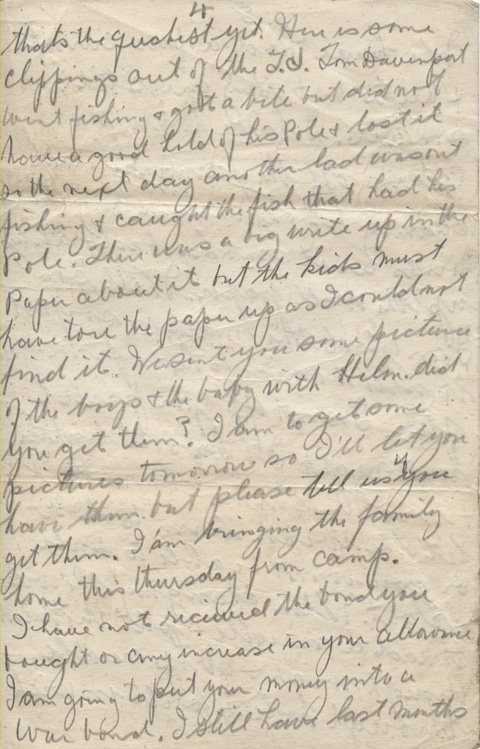 4
thats the quickest yet. Here is some
clippings out of the T.J. Tom Davenport
went fishing & got a bite but did not
have a good hold of his Pole & lost it
so the next day another lad was out
fishing & caught the fish that had his
Pole. There was a big write up in the
Paper about it but the kids must
have tore the paper up as I could not
find it. We sent you some picture
of the boys & the baby with Helm. did
you get them? I am to get some
pictures tomorrow so I'll let you
have them. but please tell us if you
get them. I am bringing the family
home this thursday from camp.
I have not received the bond you
bought or any increase in your allowance
I am going to put your money into a
War bond. I still have last months